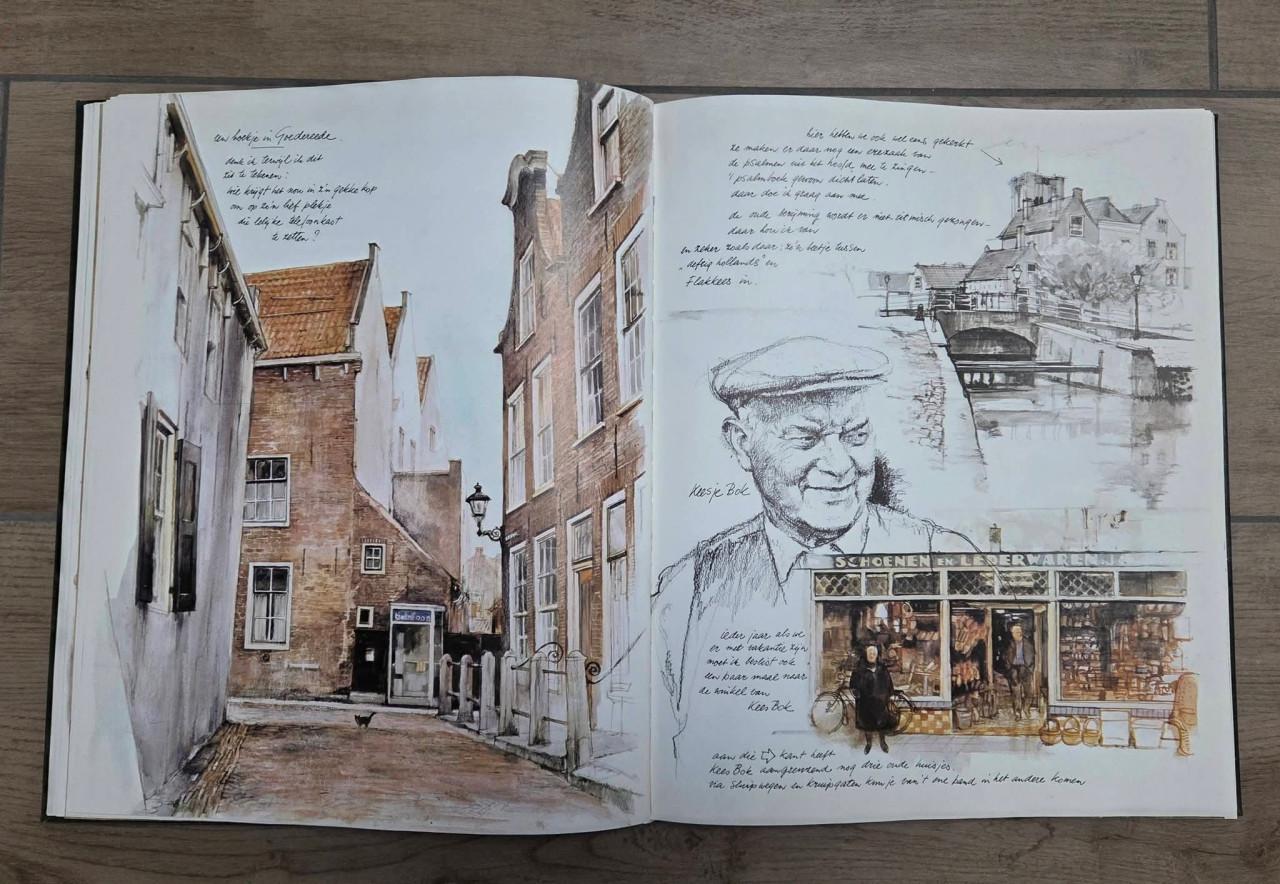 een hoekje in Goedereede.
denk ik terwijl ik dit
zit te tekenen:
wie krijgt het nou in z'n gekke kop
om op zo'n lief plekje
die lelijke telefoonkast
te zetten?
telefoon
hier hebben we ook wel eens gekerkt
ze maken er daar nog een erezaak van
de psalmen uit het hoofd mee te zingen-
't psalmboek gewoon dicht laten.
daar doe ik graag aan mee.
de oude berijming wordt er niet ritmisch gezongen-
daar hou ik van
en zeker zoals daar: zo'n beetje tussen
"deftig hollands" en
Flakkees in.
Keesje Bok
SCHOENEN EN LEDERWAREN
ieder jaar als we
er met vakantie zijn
moet ik beslist ook
een paar maal naar
de winkel van
Kees Bok
aan die kant heeft
Kees Bok aangrenzend nog drie oude huisjes.
via sluipwegen en kruipgaten kun je van 't ene pand in het andere komen